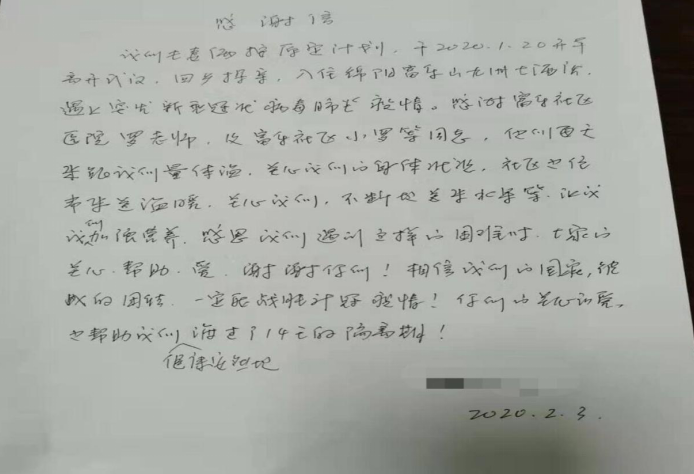 感谢信
我们夫妻俩按原定计划,于2020.1.20开车
离开武汉,回乡探亲,入住绵阳富乐山九洲七酒店,
遇上突发新型冠状病毒肺炎疫情。感谢富乐社区
医院罗老师,及富乐社区小罗等同志,他们每天
来给我们量体温,关心我们的身体状况,社区也经
常来送温暖,关心我们,不断地送来水果等,让我
们加强营养,感恩我们遇到这样的困难时,大家的
关心、帮助、爱,谢谢你们!相信我们的国家,能
的团结,一定能战胜新冠疫情!你们的关心和爱,
也帮助我们健康安全地渡过了14天的隔离期!
2020.2.3.